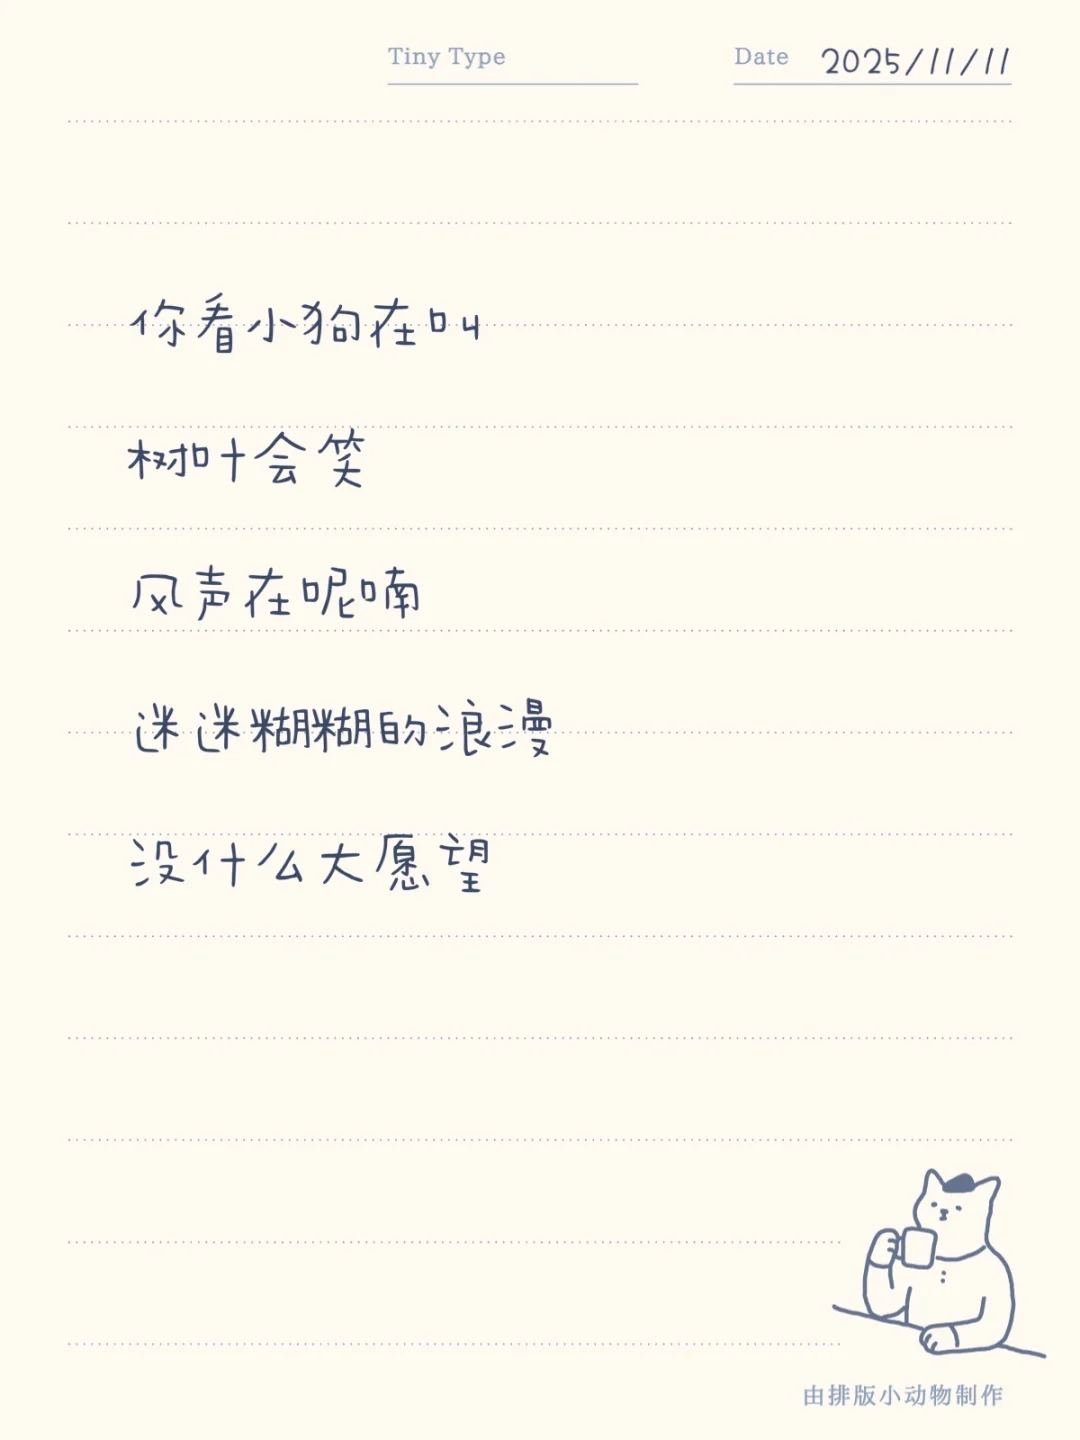 Tiny Type
Date 2025/11/11
你看小狗在叫
树叶会笑
风声在呢喃
迷迷糊糊的浪漫
没什么大愿望
由排版小动物制作